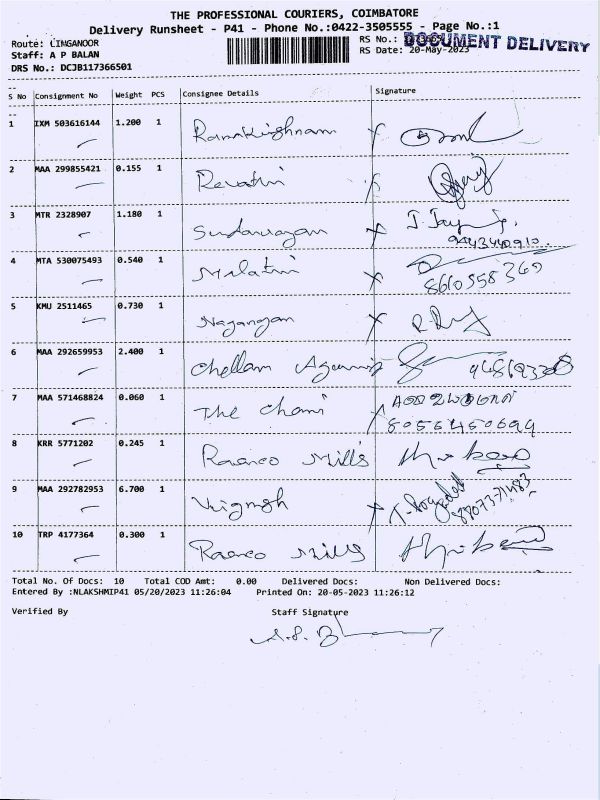 THE PROFESSIONAL COURIERS, COIMBATORE
Delivery Runsheet - P41 - Phone No.:0422-3505555 - Page No.:1
Route: LINGANOOR
RS No.:
DOCUMENT DELIVERY
Staff: A P BALAN
RS Date: 20-May-2023
DRS No.: DCJB117366501
S No Consignment No Weight PCS Consignee Details Signature
1 IXM 503616144 1.200 1 Ramakrishnam X
2 MAA 299855421 0.155 1 Revathi X
3 MTR 2328907 1.180 1 Sundarrajan X
4 MTA 530075493 0.540 1 Malathi X
5 KMU 2511465 0.730 1 Nagarajan X
6 MAA 292659953 2.400 1 Chellam
7 MAA 571468824 0.060 1 The Chami
8056450694
8 KRR 5771202 0.245 1 Raanco Mills
9 MAA 292782953 6.700 1 Vignesh X
10 TRP 4177364 0.300 1 Raanco Mills
Total No. Of Docs: 10 Total COD Amt: 0.00 Delivered Docs: Non Delivered Docs:
Entered By :NLAKSHMIP41 05/20/2023 11:26:04 Printed On: 20-05-2023 11:26:12
Verified By Staff Signature